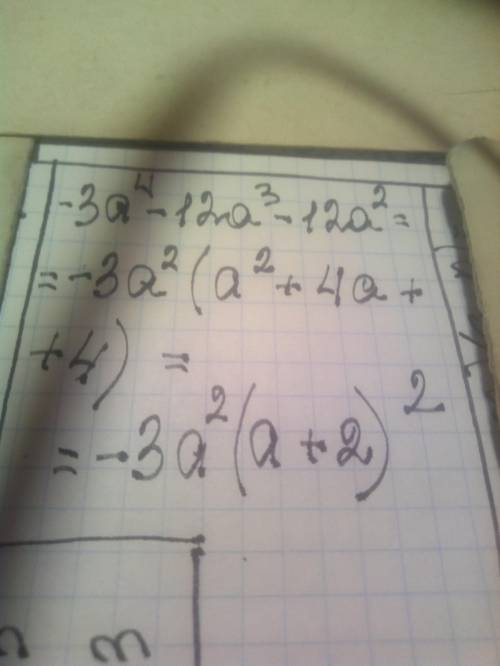 -3a⁴-12a³-12a²=
=-3a²(a²+4a+
+4) =
=-3a²(a+2)²